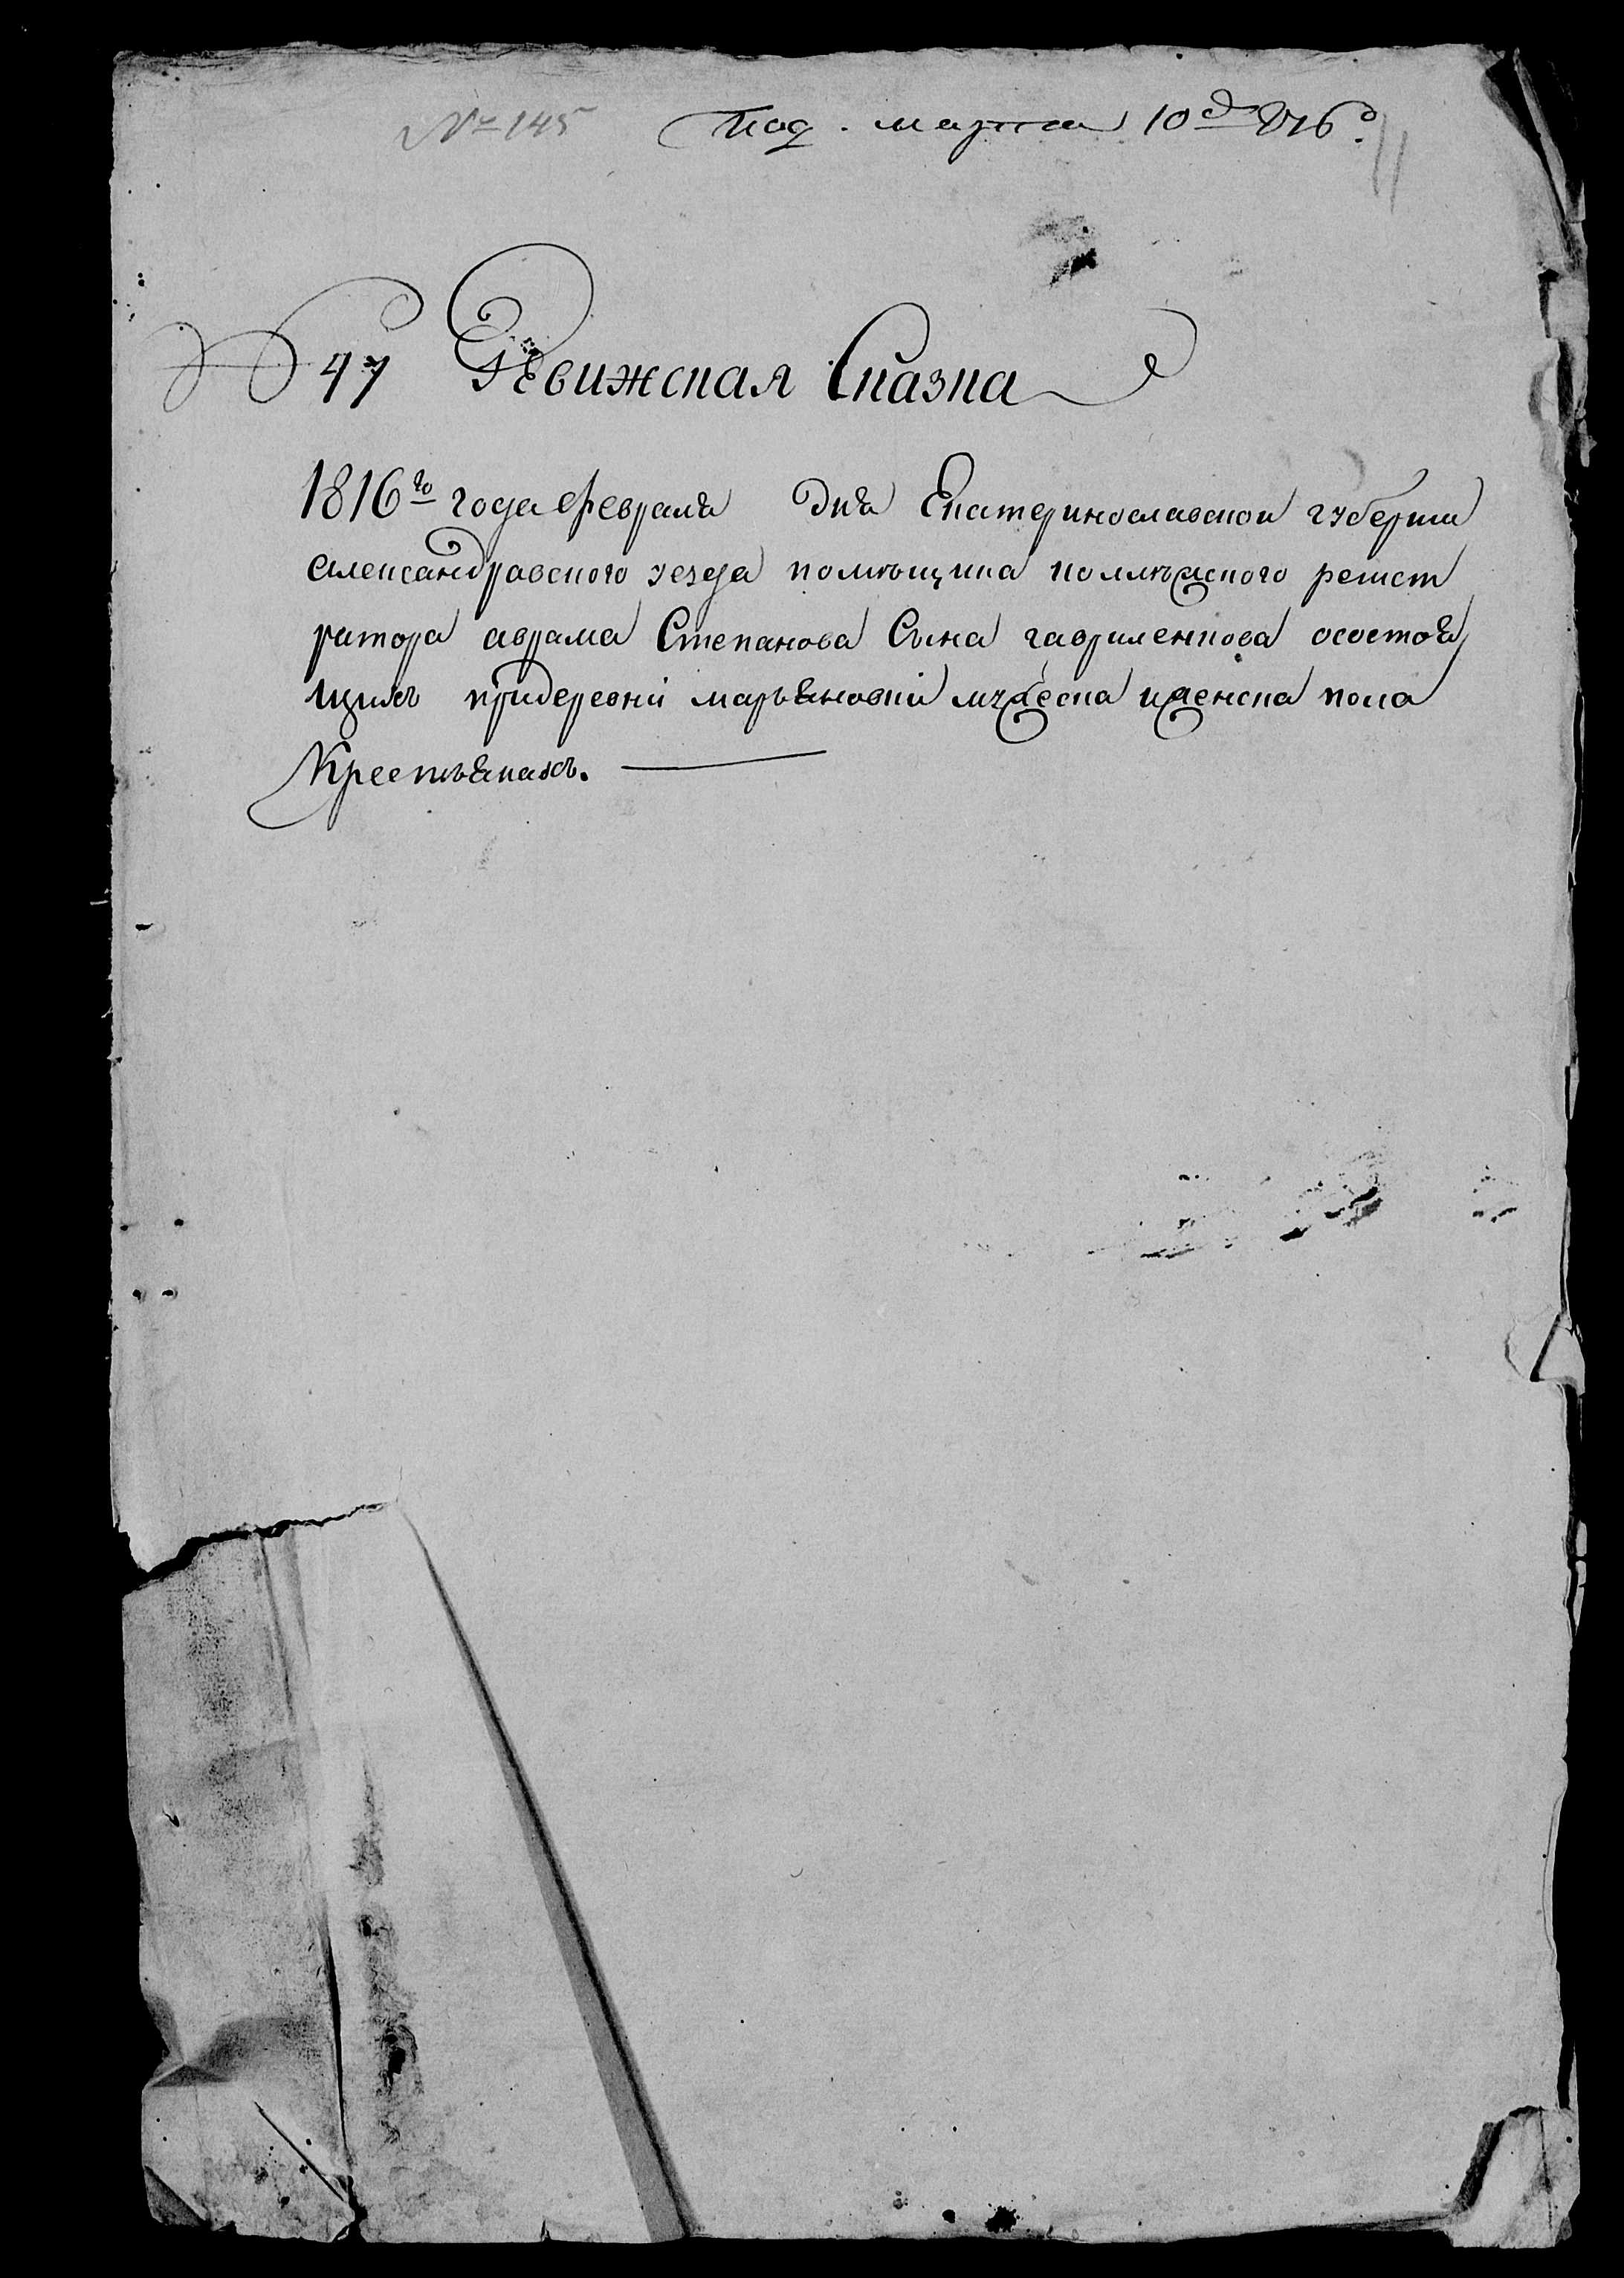 № 145 Под. марта 10д 816д.
№ 47 Ревижская Сказка
1816го года февраля дня Екатеринославской губернии
Александравского уезда помѣщика колѣжского регист
ратора аврама Степанова Сына гавриленкова осостоя
щихъ придеревни марьяновки мужеска иженска пола
Крестьянахъ.